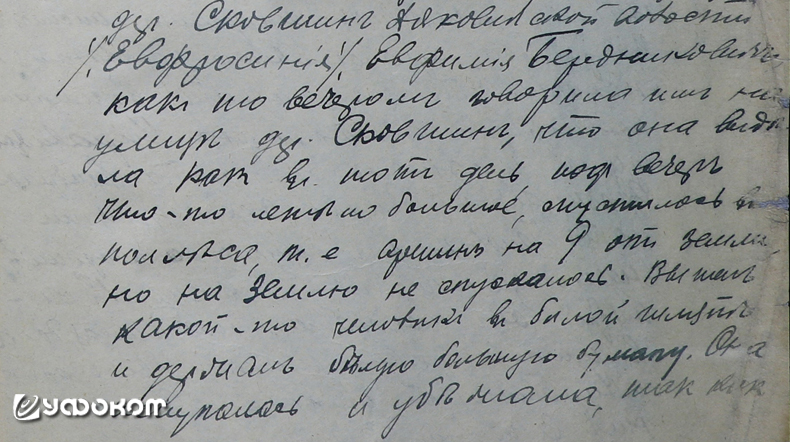 дер. Сковшинъ Ляховичской волости
/. Евфросинія /. Евфимія Бердниковичъ
какъ то вечеромъ говорила имъ на
улицѣ дер. Сковшинъ, что она видѣ-
ла какъ въ тотъ день, подъ вечеръ
что-то летѣло большое, спустилось въ
полѣса, т.е аршинъ на 9 отъ земли,
но на землю не спускалось. Въ немъ
какой-то человѣкъ въ бѣлой шляпѣ
и держалъ бѣлую большую бумагу. Она
испугалась и убѣжала, такъ какъ
уфоком